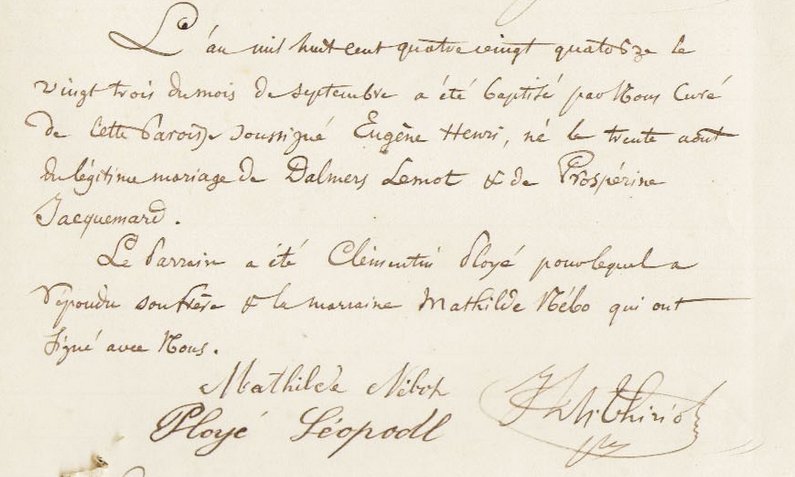 L'an mil huit cent quatre vingt quatorze le
vingt trois du mois de septembre a été baptisé par Nous Curé
de cette Paroisse soussigné Eugène Henri, né le trente août
du légitime mariage de Dalmers Lemot & de Prospérine
Jacquemard.
Le Parrain a été Clémentin Ployé pour lequel a
répondu son frère & la marraine Mathilde Nébo qui ont
signé avec Nous.
Mathilde Nébot
Ployé Léopodl
Thirio